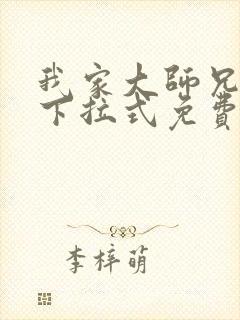 我家大師兄
下拉式免費
李梓萌